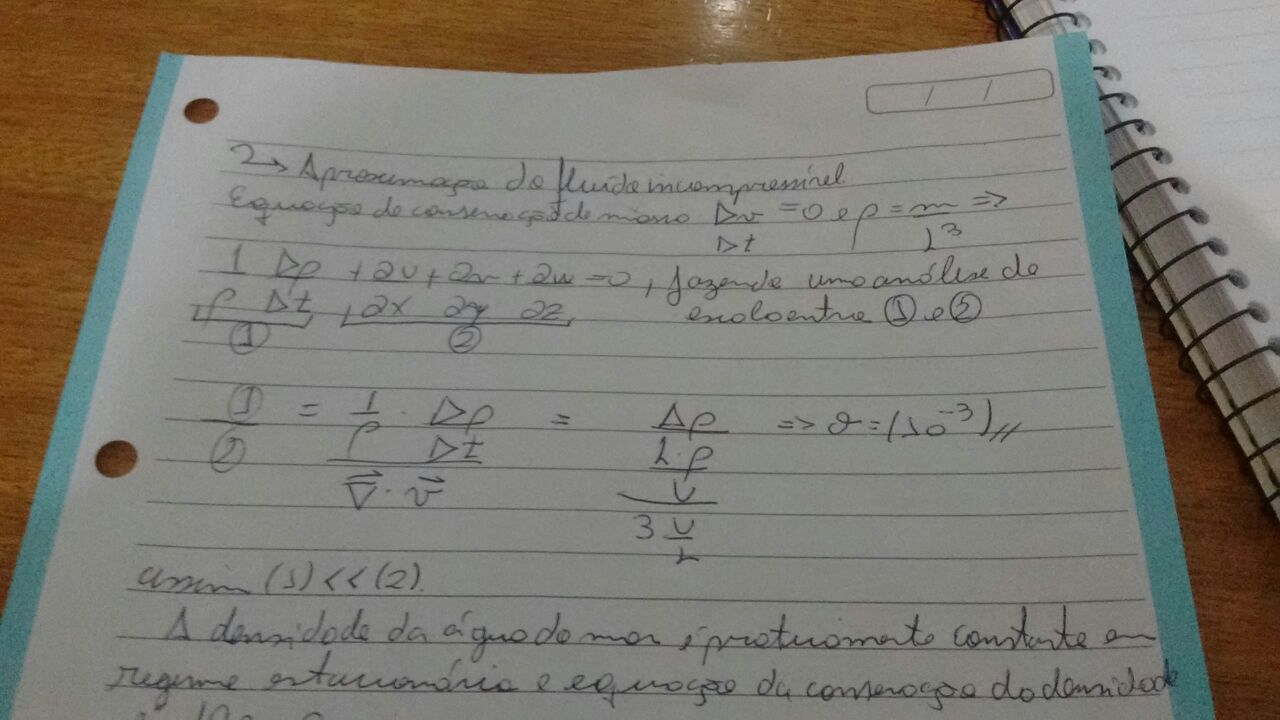 2→ Aproximação do fluido incompressível
Equação de conservação de massa Dv/Dt = 0 e ρ = m/L³ =>
1/ρ Dρ/Dt + ∂u/∂x + ∂v/∂y + ∂w/∂z = 0, fazendo uma análise de
① ② escala entre ① e ②
①/② = (1/ρ · Dρ/Dt)/(∇⃗ · v⃗) = (Δρ/(L·ρ/U))/(3 U/L) => O = (10⁻³)//
assim (1) << (2).
A densidade da água do mar é praticamente constante em
regime estacionário e equação da conservação da densidade